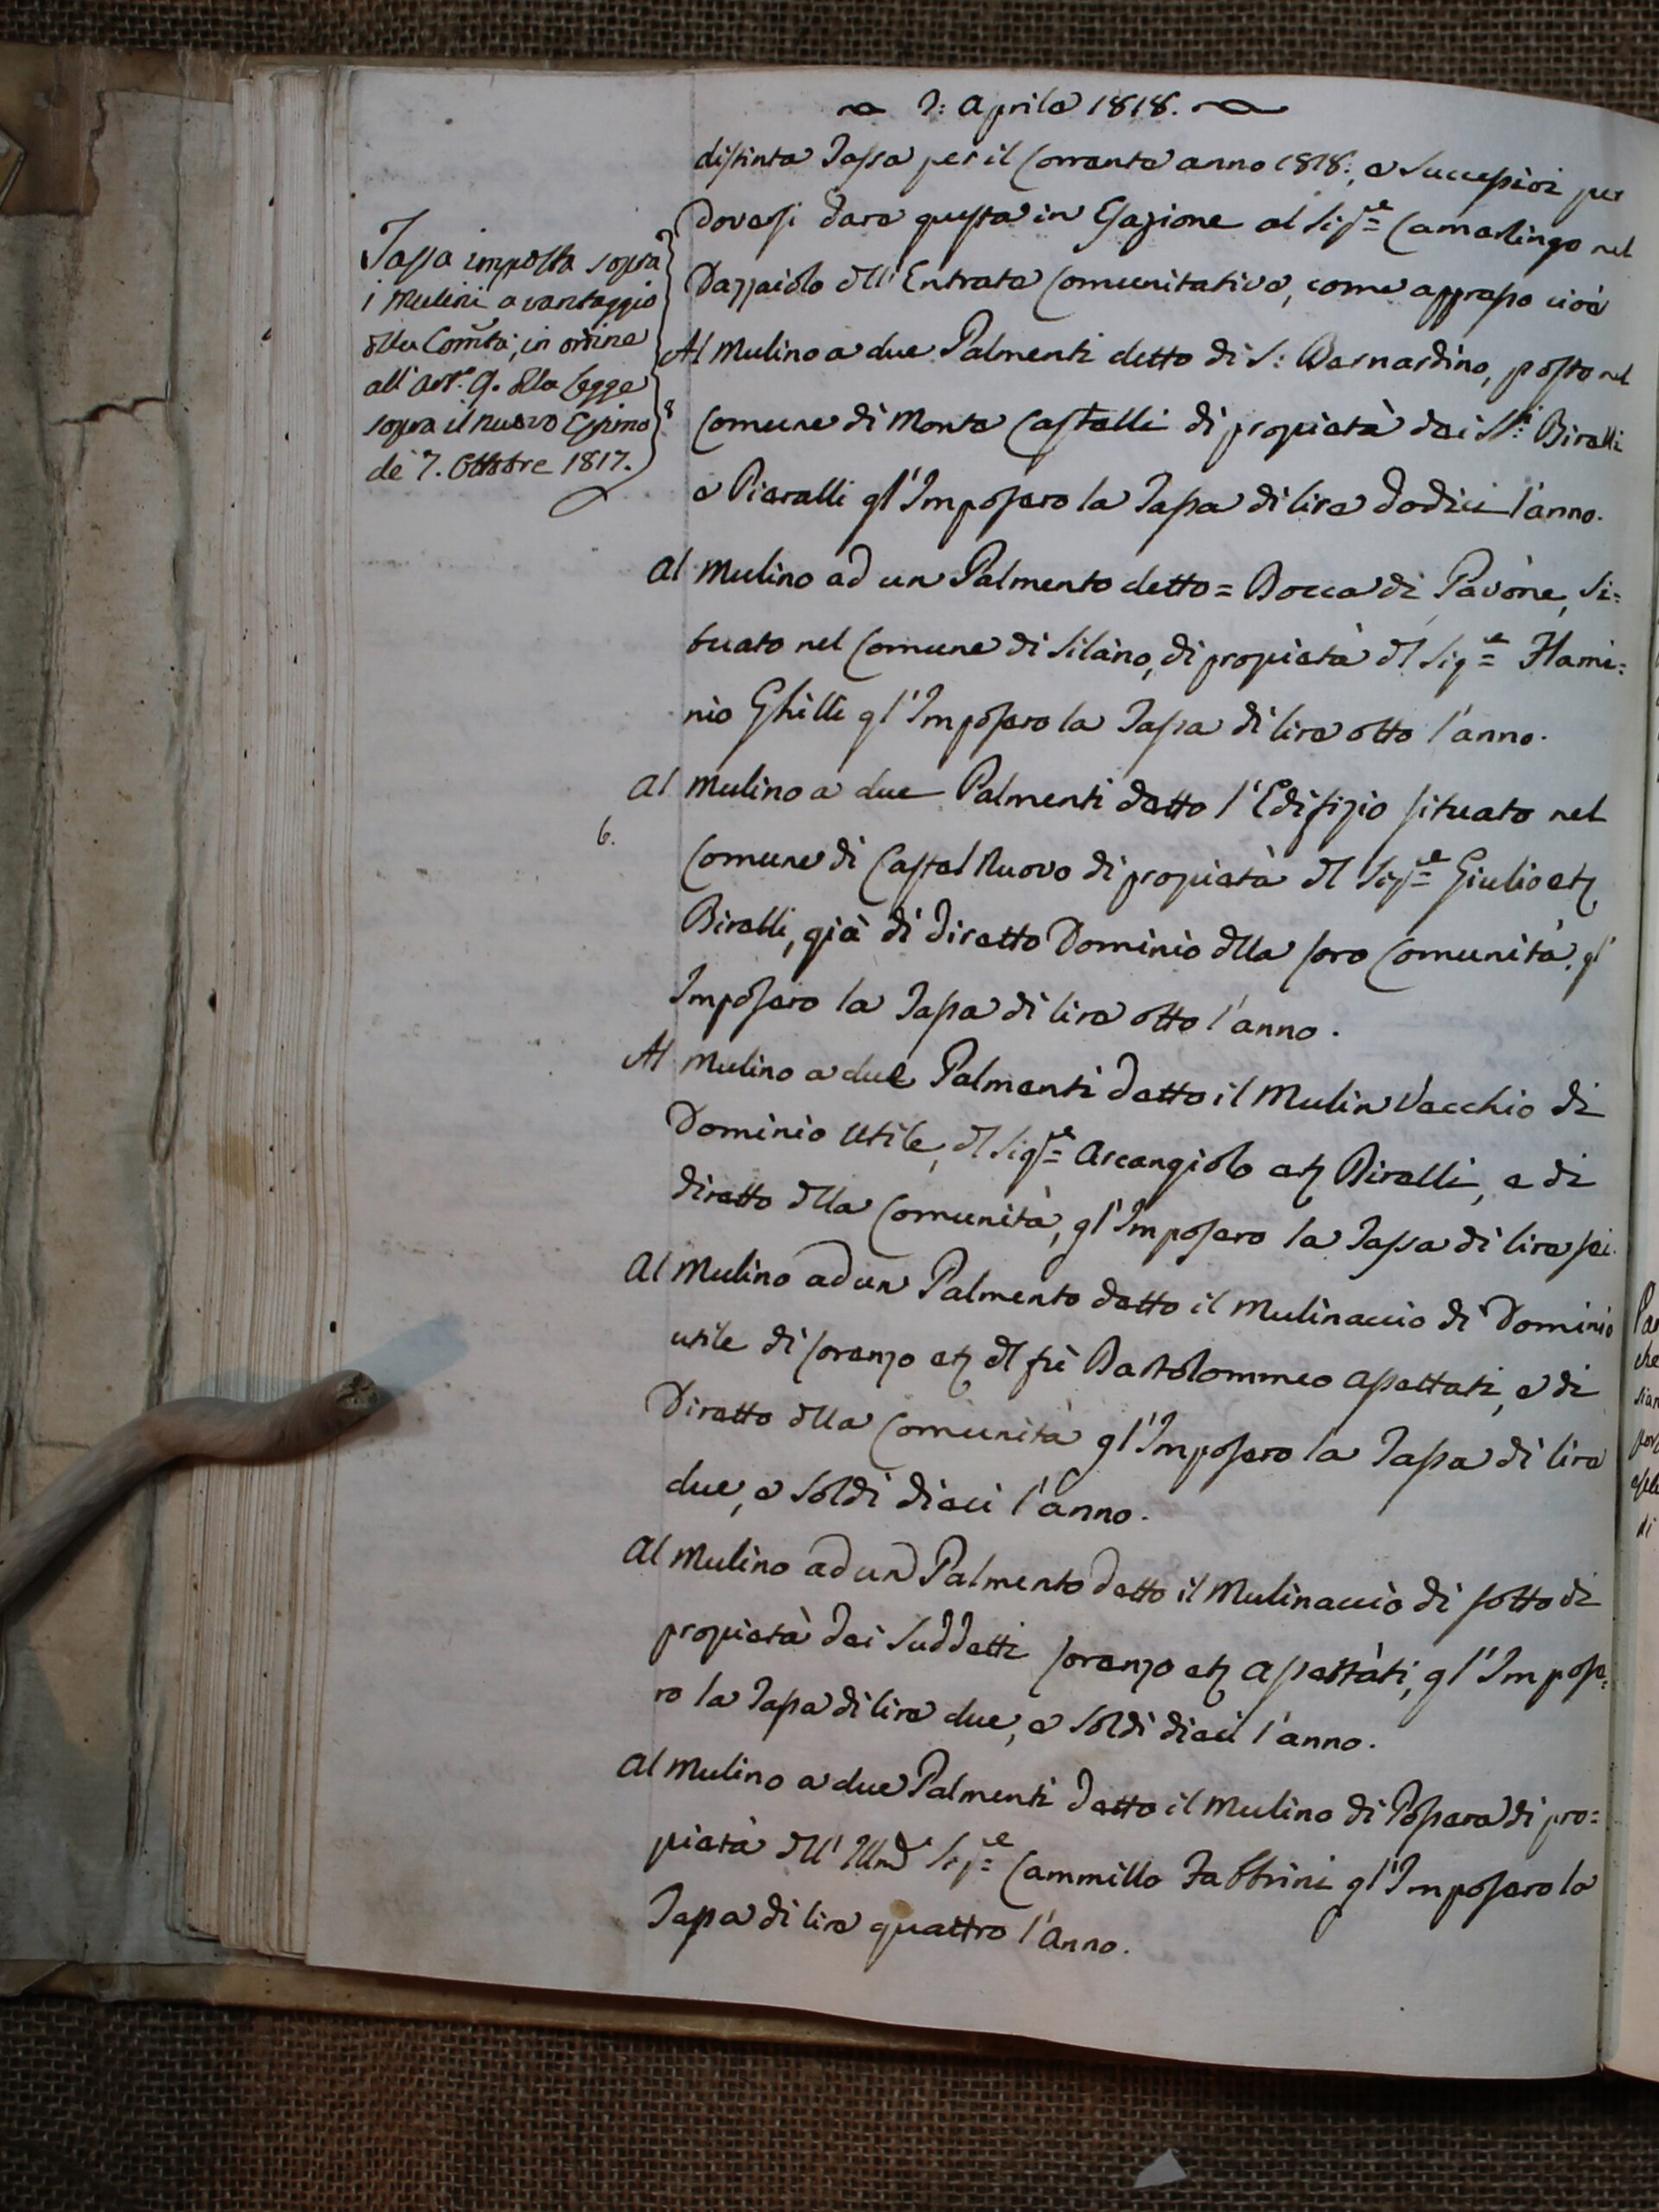 2: Aprile 1818.
distinta Tassa per il Corrente anno 1818:, e Successivi per
Doversi dare questa in Esazione al Sig.re Camarlingo nel
Dazzaiolo dll'Entrate Comunitative, come appresso cioè
Al Mulino a due Palmenti detto di S: Bernardino, posto nel
Comune di Monte Castelli di propietà dei SS.ri Biralli
e Pieralli gl'Imposero la Tassa di lire dodici l'anno.
Al Mulino ad un Palmento detto = Bocca di Pavone, Si=
tuato nel Comune di Silano, di propietà dl Sig.re Flami=
nio Ghilli gl'Imposero la Tassa di lire otto l'anno.
Al Mulino a due Palmenti detto l'Edifizio situato nel
Comune di Castel Nuovo di propietà dl Sig.re Giulio etc
Biralli, già di diretto Dominio dlla loro Comunità, gl'
Imposero la Tassa di lire otto l'anno.
Al Mulino a due Palmenti detto il Mulin Vecchio di
Dominio Utile, dl Sig.re Arcangiolo etc Biralli, e di
diretto dlla Comunità, gl'Imposero la Tassa di lire sei.
Al Mulino ad un Palmento detto il Mulinaccio di Dominio
utile di Lorenzo etc dl fù Bartolommeo Aspettati, e di
Diretto dlla Comunità gl'Imposero la Tassa di lire
due, e Soldi dieci l'anno.
Al Mulino ad un Palmento detto il Mulinaccio di sotto di
propietà dei Suddetti Lorenzo etc Aspettati, gl'Impose=
ro la Tassa di lire due, e Soldi dieci l'anno.
Al Mulino a due Palmenti detto il Mulino di Possera di pro=
pietà dll'Illmo Sig.re Cammillo Fabbrini gl'Imposero la
Tassa di lire quattro l'Anno.
Tassa imposta sopra
i Mulini a vantaggio
dlla Comtà, in ordine
all'art.o 9. dlla Legge
sopra il nuovo Estimo
de 7. Ottobre 1817.
6.